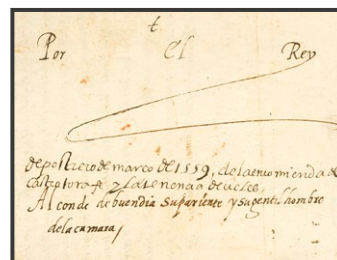 t
Por El Rey
de postrero de março de 1559, de la encomienda de
y la tenencia de ucles,
Al conde de buendia su pariente y su gentil hombre
de la camara,